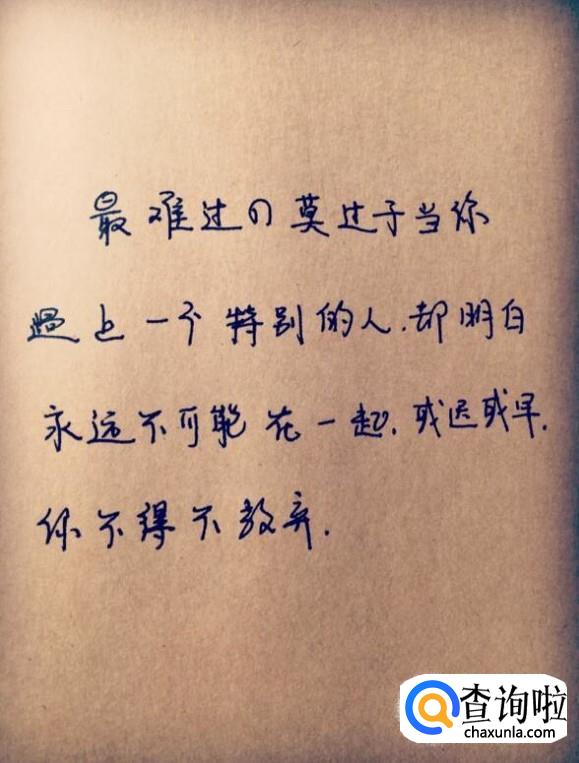 最难过的莫过于当你
遇上一个特别的人.却明白
永远不可能在一起.或迟或早.
你不得不放弃.
查询啦
chaxunla.com